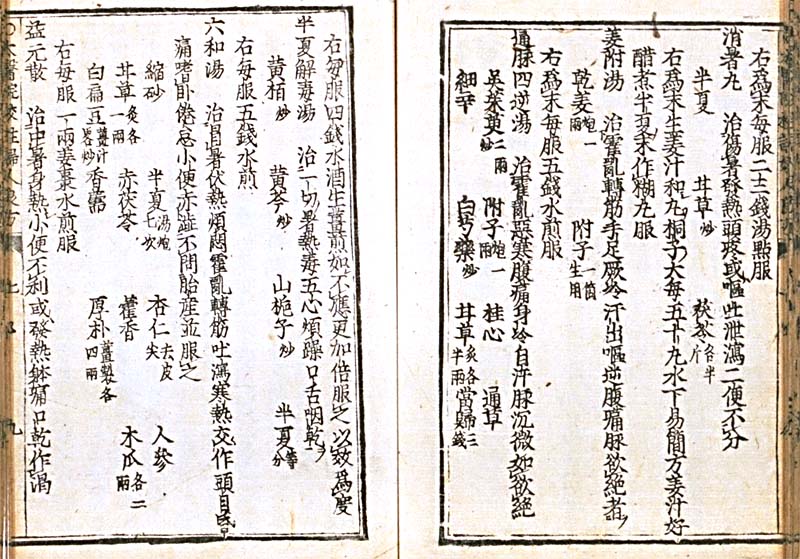 右爲末每服二三錢湯點服
消暑丸 治傷暑發熱頭疼或嘔吐泄瀉二便不分
半夏 甘草炒 茯苓各半斤
右爲末生姜汁和丸桐子大每五十丸水下易簡方姜汁好
醋煮半夏末作糊丸服
姜附湯 治霍亂轉筋手足厥冷汗出嘔逆腹痛脉欲絶者
乾姜炮一兩 附子一箇生用
右爲末每服五錢水煎服
通脉四逆湯 治霍亂惡寒腹痛身冷自汗脉沉微如欲絶
吳茱萸二兩炒 附子炮一兩 桂心 通草
細辛 白芍藥炒 甘草炙各半兩 當歸三錢
右每服四錢水酒生薑煎如不應更加倍服之以效爲度
半夏解毒湯 治一切暑熱毒五心煩躁口舌咽乾
黃栢炒 黃芩炒 山梔子炒 半夏等分
右每服五錢水煎
六和湯 治冒暑伏熱煩悶霍亂轉筋吐瀉寒熱交作頭目昏
痛嗜卧倦怠小便赤澁不問胎産並服之
縮砂 半夏湯炮七次 杏仁去皮尖 人參
甘草炙各一兩 赤茯苓 藿香 木瓜各二兩
白扁豆薑汁畧炒 香薷 厚朴薑製各四兩
右每服一兩姜棗水煎服
益元散 治中暑身熱小便不利或發熱躰痛口乾作渴
太醫院校註婦人良方 上 九